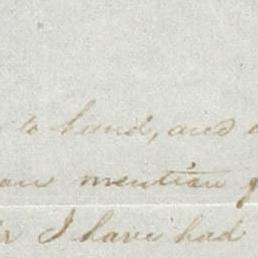 to hand, and
mention
I have had